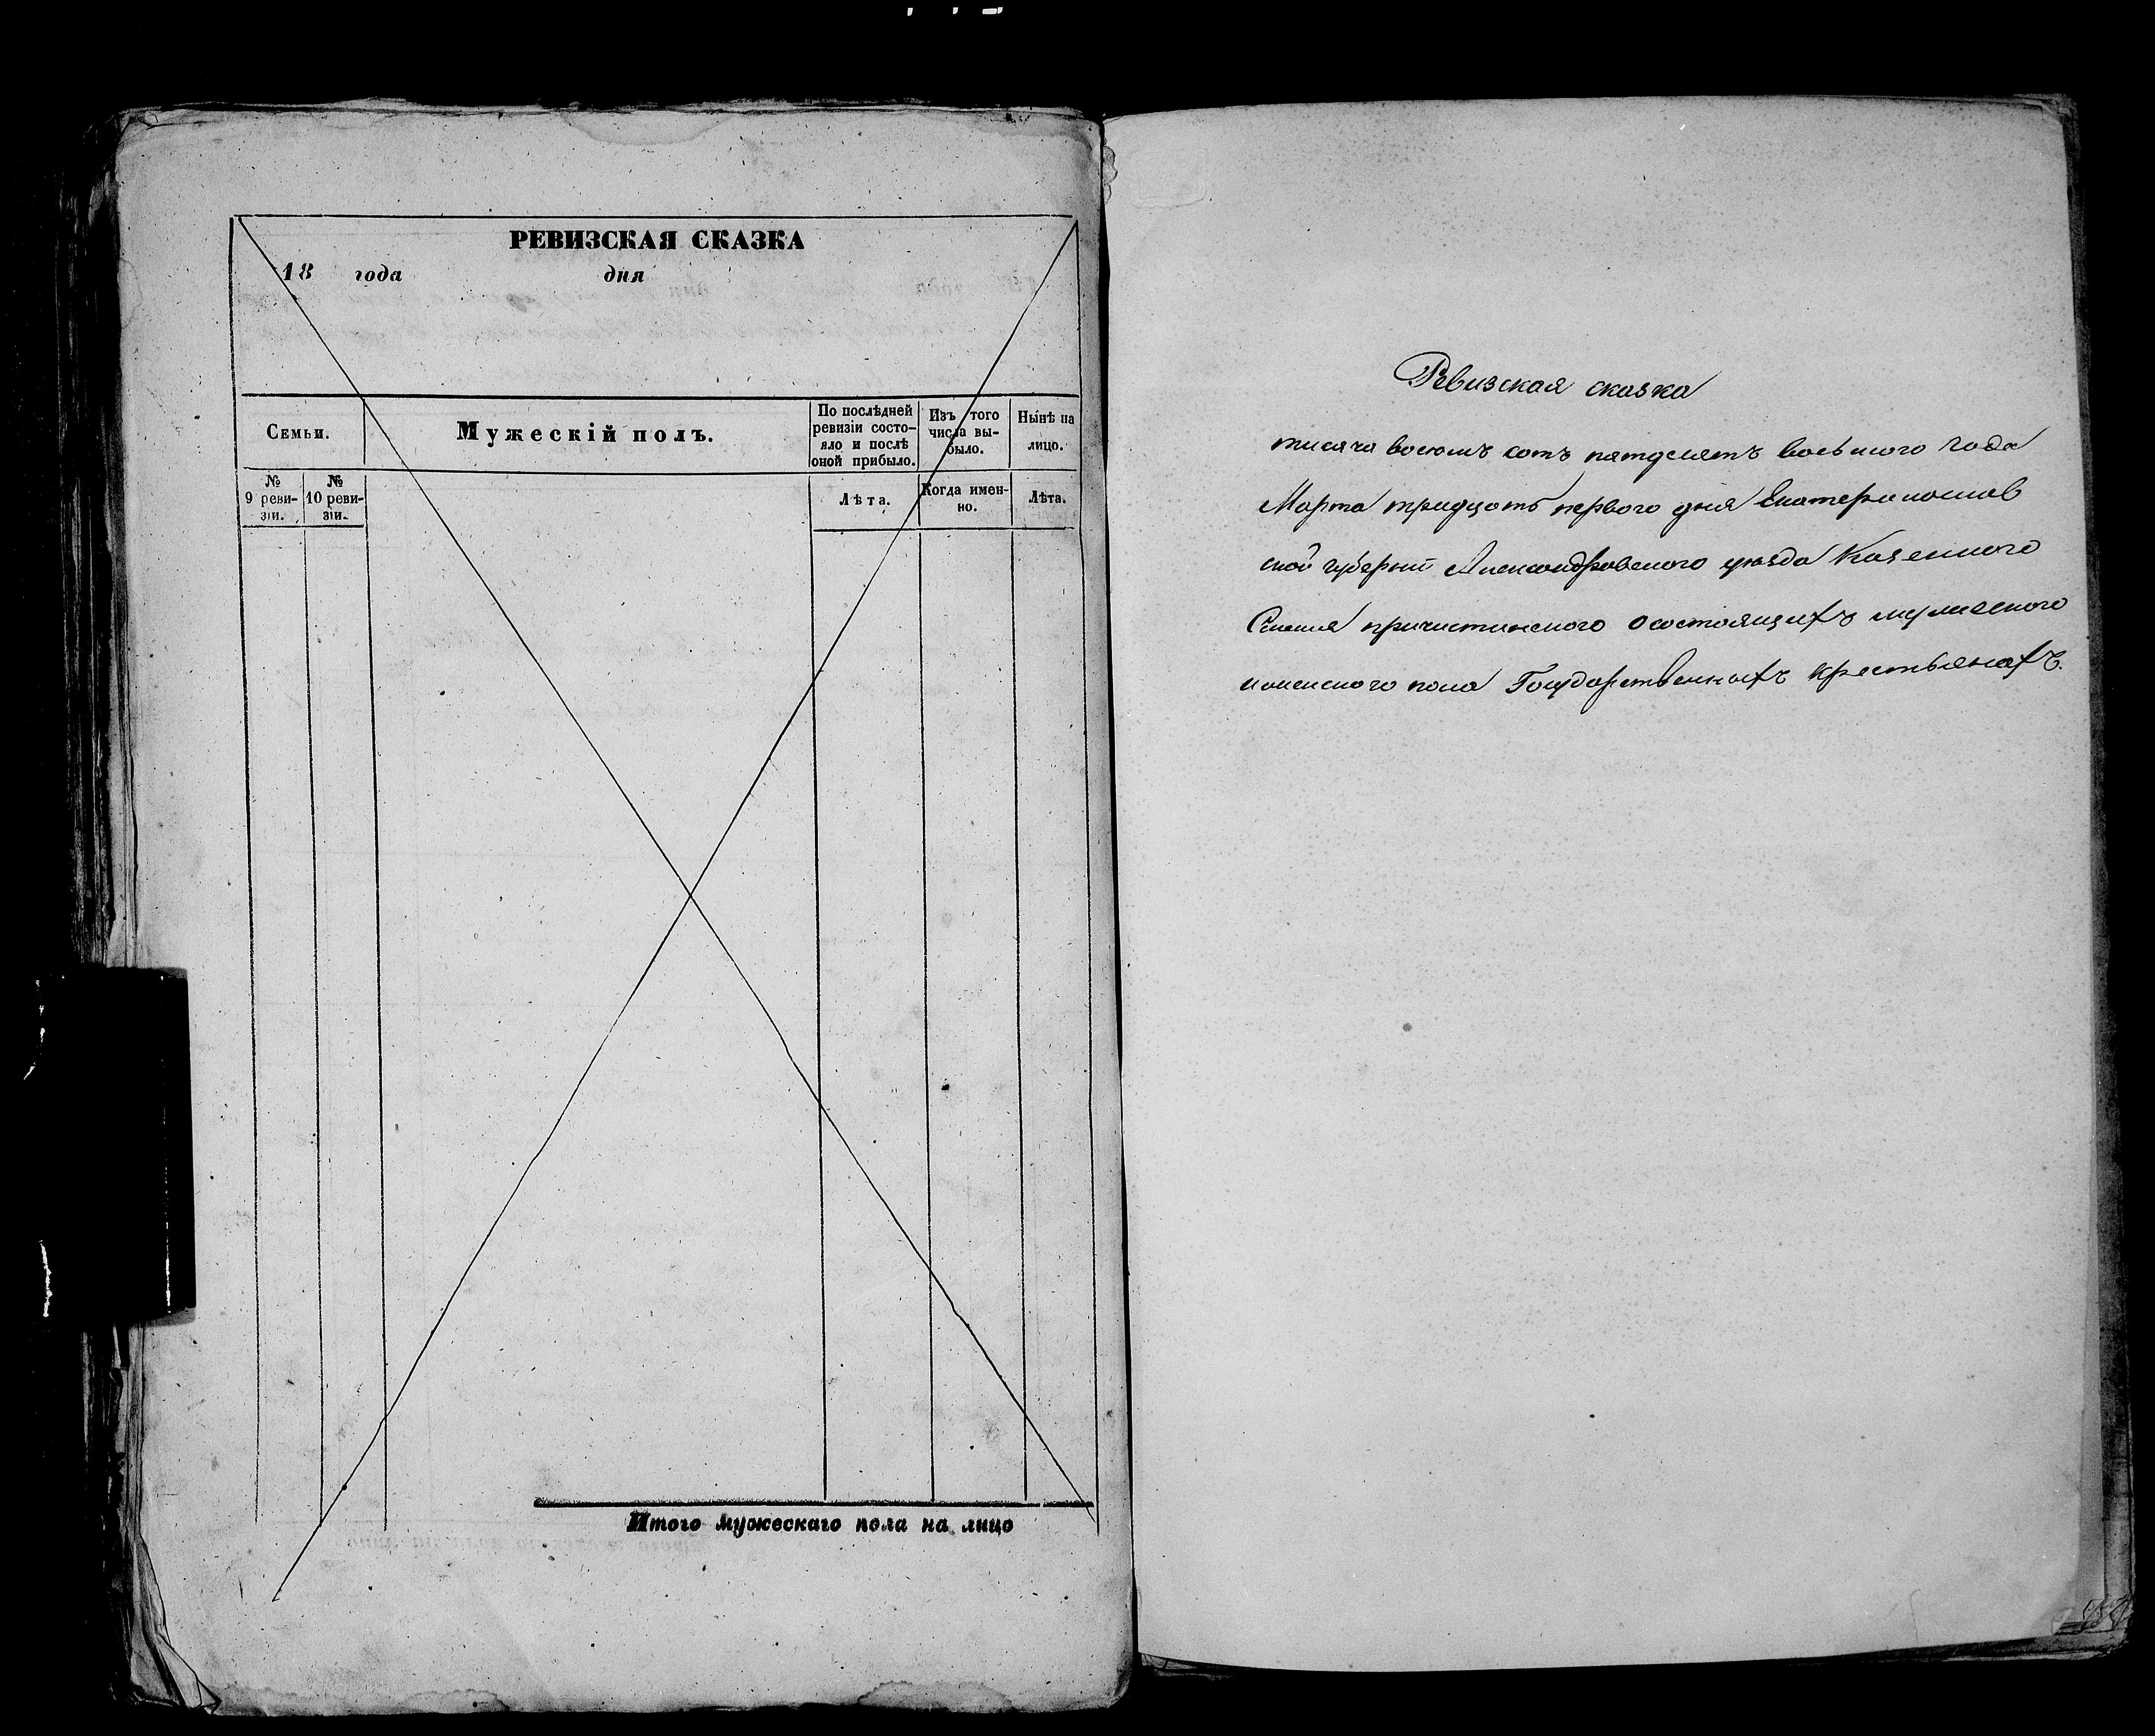 РЕВИЗСКАЯ СКАЗКА
18 года дня
Семьи.
Мужескій полъ.
По послѣдней ревизіи состо-
яло и послѣ
оной прибыло.
Изъ того
числа вы-
было.
Нынѣ на
лицо.
№
9 реви-
зіи.
№
10 реви-
зіи.
Лѣта.
Когда имен-
но.
Лѣта.
Итого мужескаго пола на лицо
Ревизская сказка
тисяча восемъ сотъ пятдесятъ восьмого года
Марта тридцать первого дня Екатеринослав
ской губерніи Александровского уѣзда Казенного
Селенія пречистинского о состоящихъ мужеского
и женского пола Государственныхъ крестьянахъ.